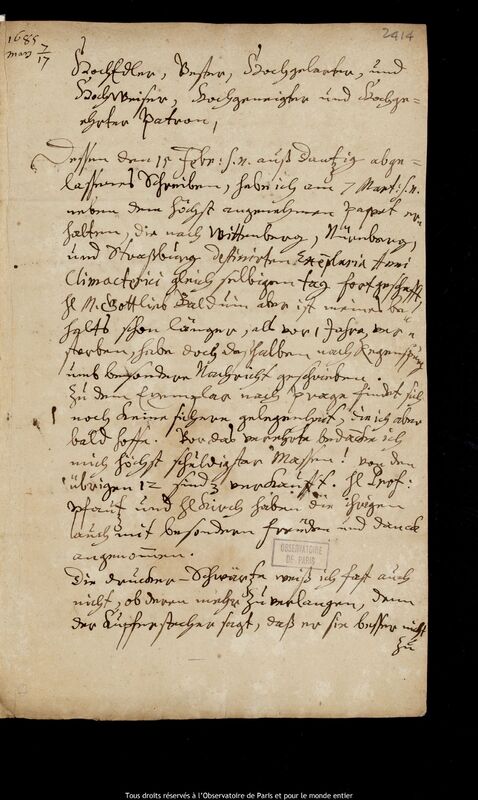 1685
mart 7/17
2414
HochEdler, Vester, Hochgelarter, und
HochWeiser, Hochgeneigter und Hochge=
ehrter Patron,
Dessen den 15 Febr: s.n. auß Dantzig abge=
lassenes Schreiben, habe ich am 7 Mart: s.v.
neben dem höchst angenehmen Paquet er=
halten, die nach Wittenberg, Nürnberg,
und Straßburg destinirten Exeplaria Anni
Climacterici gleich selbigen tag fortgeschafft,
hl M. Gottlieb aber ist meines be=
halts schon länger, als vor 1 Jahre, ver=
storben, habe doch deßhalben nach Regenspurg
umb besondere Nachricht geschrieben.
Zu dem Exemplar nach Prage findet sich
noch keine sichere gelegenheit, die ich aber
bald hoffe. Vor das verehrte bedancke ich
mich höchst schuldigster Massen! von den
übrigen 12 sind 3 verkaufft. hl Prof:
Pfautz und hl Kirch haben die ihrigen
auch mit besondern freuden und danck
angenommen.
OBSERVATOIRE
DE PARIS
Die drucker Schwärtze weiß ich fast auch
nicht, ob deren mehr zu verlangen, denn
der Kupfferstecher sagt, daß er sie besser nicht
zu
Tous droits réservés à l'Observatoire de Paris et pour le monde entier